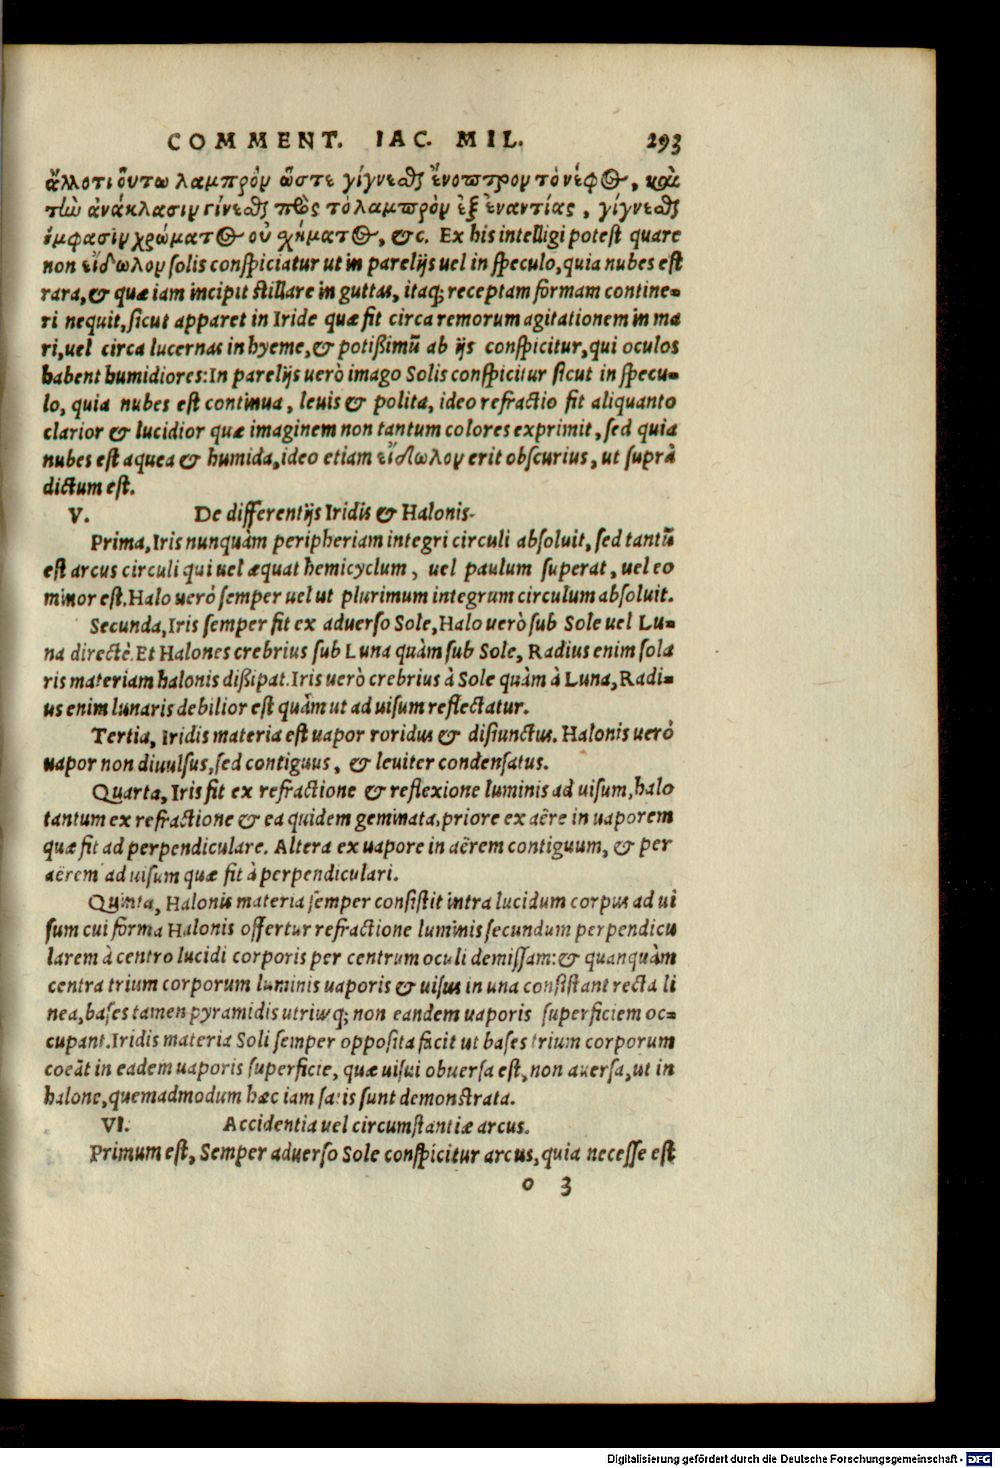 COMMENT. IAC. MIL. 293
ἄλλοτι οὕτω λαμπρὸν ὥστε γίγνεϑ ἔνοπτρον τὸ νέφΘ, καὶ
τὼ ἀνάκλασιν γίνεϑ πρὸς τὸ λαμπρὸν ἐξ ἐναντίας, γίγνεϑ
ἐμφασιν χρώματΘ οὐ χήματΘ, &c. Ex his intelligi potest quare
non εἴδωλον solis conspiciatur ut in parelijs uel in speculo, quia nubes est
rara, & quæ iam incipit stillare in guttas, itaq; receptam formam contine-
ri nequit, sicut apparet in Iride quæ fit circa remorum agitationem in ma
ri, uel circa lucernas in hyeme, & potißimũ ab ijs conspicitur, qui oculos
habent humidiores: In parelijs uerò imago Solis conspicitur sicut in specu-
lo, quia nubes est continua, leuis & polita, ideo refractio fit aliquanto
clarior & lucidior quæ imaginem non tantum colores exprimit, sed quia
nubes est aquea & humida, ideo etiam εἴδωλον erit obscurius, ut suprà
dictum est.
V. De differentijs Iridis & Halonis.
Prima, Iris nunquàm peripheriam integri circuli absoluit, sed tantũ
est arcus circuli qui uel æquat hemicyclum, uel paulum superat, uel eo
minor est. Halo uerò semper uel ut plurimum integrum circulum absoluit.
Secunda, Iris semper fit ex aduerso Sole, Halo uerò sub Sole uel Lu-
na directè. Et Halones crebrius sub Luna quàm sub Sole, Radius enim sola
ris materiam halonis dißipat. Iris uerò crebrius à Sole quàm à Luna, Radi-
us enim lunaris debilior est quàm ut ad uisum reflectatur.
Tertia, Iridis materia est uapor roridus & disiunctus. Halonis uerò
uapor non diuulsus, sed contiguus, & leuiter condensatus.
Quarta, Iris fit ex refractione & reflexione luminis ad uisum, halo
tantum ex refractione & ea quidem geminata, priore ex aëre in uaporem
quæ fit ad perpendiculare. Altera ex uapore in aërem contiguum, & per
aërem ad uisum quæ fit à perpendiculari.
Quinta, Halonis materia semper consistit intra lucidum corpus ad ui
sum cui forma Halonis offertur refractione luminis secundum perpendicu
larem à centro lucidi corporis per centrum oculi demissam: & quanquàm
centra trium corporum luminis uaporis & uisus in una consistant recta li
nea, bases tamen pyramidis utriusq; non eandem uaporis superficiem oc-
cupant. Iridis materia Soli semper opposita facit ut bases trium corporum
coeãt in eadem uaporis superficie, quæ uisui obuersa est, non auersa, ut in
halone, quemadmodum hæc iam satis sunt demonstrata.
VI. Accidentia uel circumstantiæ arcus.
Primum est, Semper aduerso Sole conspicitur arcus, quia necesse est
o 3
Digitalisierung gefördert durch die Deutsche Forschungsgemeinschaft - DFG